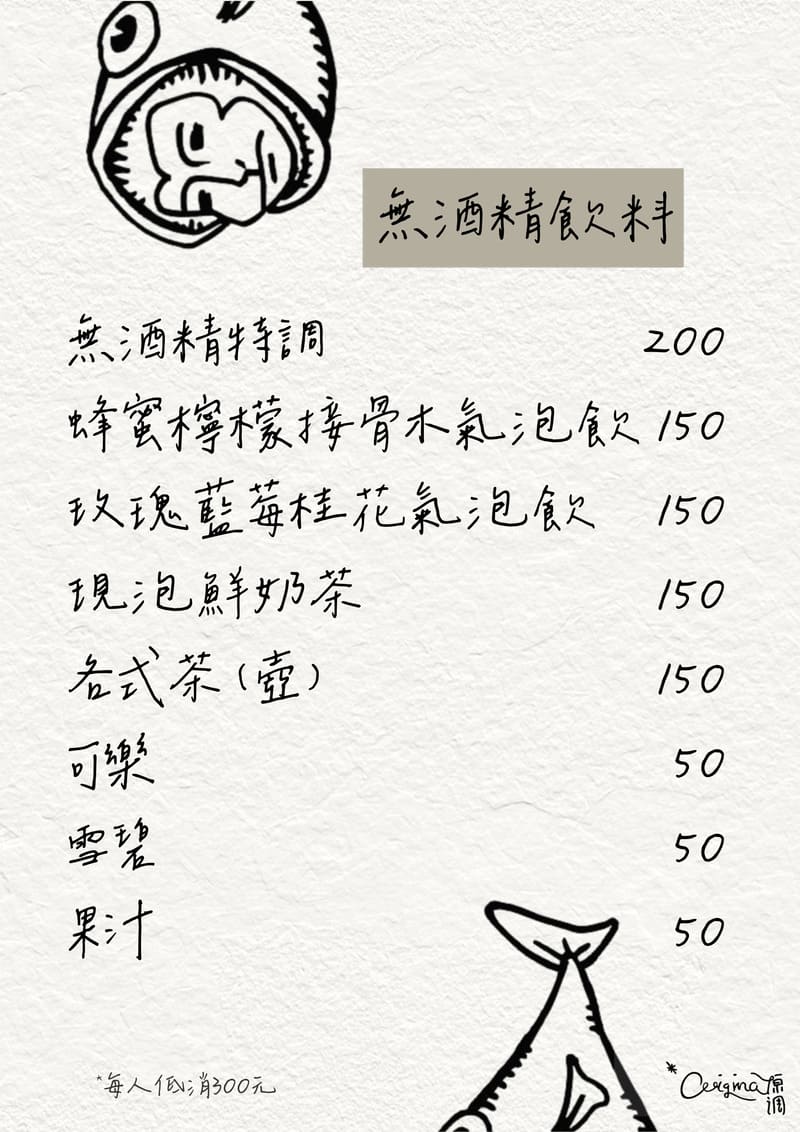 無酒精飲料
無酒精特調 200
蜂蜜檸檬接骨木氣泡飲 150
玫瑰藍莓桂花氣泡飲 150
現泡鮮奶茶 150
各式茶(壺) 150
可樂 50
雪碧 50
果汁 50
*每人低消300元
*Origina原調